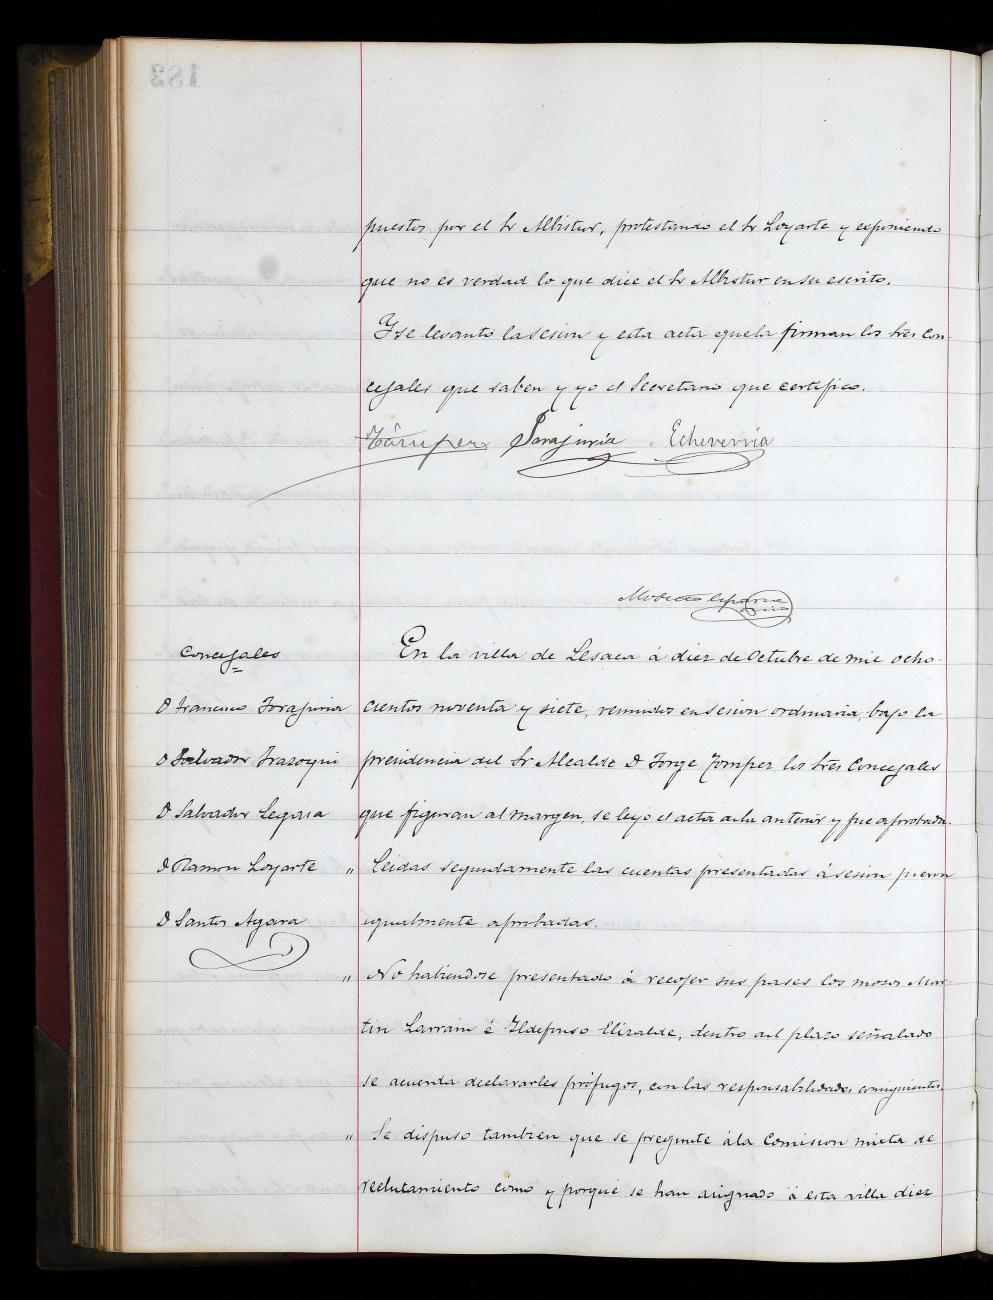 182
puestos por el Sr Albistur, protestando el Sr Loyarte y exponiendo
que no es verdad lo que dice el Sr Albistur en su escrito.
Y se levantó la sesion y esta acta que la firman los tres con-
cejales que saben y yo el Secretario que certifico.
Echeverria
Modesto
Concejales
D Francisco
D Salvador Irazoqui
D Salvador Legasa
D Ramon Loyarte
D Santos
En la villa de Lesaca á diez de Octubre de mil ocho-
cientos noventa y siete, reunidos en sesion ordinaria, bajo la
presidencia del Sr Alcalde D Jorge los tres Concejales
que figuran al margen, se leyo el acta de la anterior y fue aprobada.
" Leidas seguidamente las cuentas presentadas á sesion fueron
igualmente aprobadas.
" No habiendose presentado á recojer sus pases los mozos Mar-
tin Larrain é Ildefonso Elizalde, dentro del plazo señalado
se acuerda declararles prófugos, con las responsabilidades consiguientes.
" Se dispuso tambien que se pregunte á la Comision mixta de
reclutamiento cómo y porqué se han asignado á esta villa diez